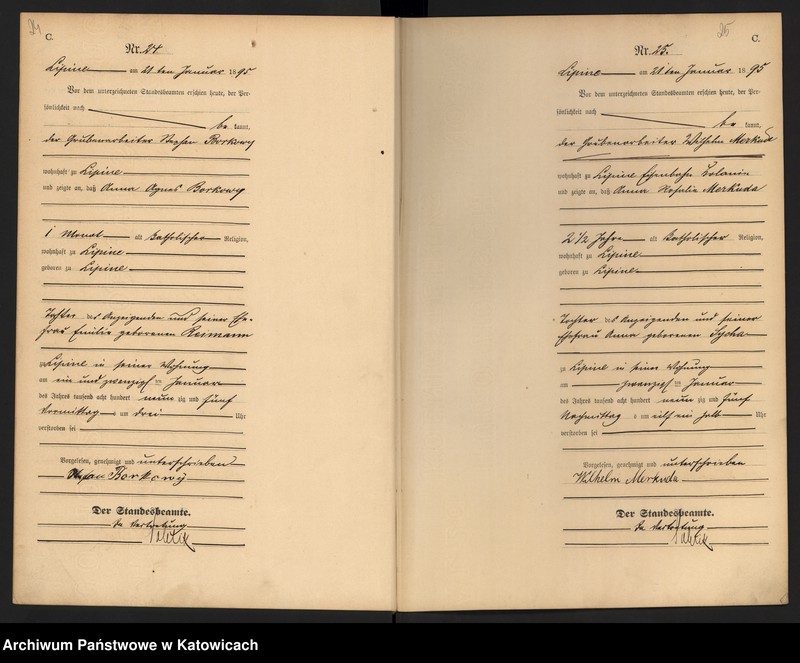 24
C.
Nr. 24.
Lipine am 21ten Januar 1895
Vor dem unterzeichneten Standesbeamten erschien heute, der Per-
sönlichkeit nach
bekannt,
der Grubenarbeiter Stephan Borkowy
wohnhaft zu Lipine
und zeigte an, daß Anna Agnes Borkowy
1 Monat alt katholischer Religion,
wohnhaft zu Lipine
geboren zu Lipine
Tochter des Anzeigenden und seiner Ehe-
frau Emilie geborenen Reimann
zu Lipine in seiner Wohnung
am ein und zwanzigsten Januar
des Jahres tausend acht hundert neunzig und fünf
Vormittag um drei Uhr
verstorben sei
Vorgelesen, genehmigt und unterschrieben
Borkowy
Der Standesbeamte.
In Vertretung
25
C.
Nr. 25.
Lipine am 21ten Januar 1895
Vor dem unterzeichneten Standesbeamten erschien heute, der Per-
sönlichkeit nach
bekannt,
der Grubenarbeiter Wilhelm Merkuda
wohnhaft zu Lipine Eisenbahn Colonie
und zeigte an, daß Anna Rosalie Merkuda
2 1/2 Jahre alt katholischer Religion,
wohnhaft zu Lipine
geboren zu Lipine
Tochter des Anzeigenden und seiner
Ehefrau Anna geborenen Sycha
zu Lipine in seiner Wohnung
am zwanzigsten Januar
des Jahres tausend acht hundert neunzig und fünf
Nachmittag um elf ein halb Uhr
verstorben sei
Vorgelesen, genehmigt und unterschrieben
Wilhelm Merkuda
Der Standesbeamte.
In Vertretung
Archiwum Państwowe w Katowicach